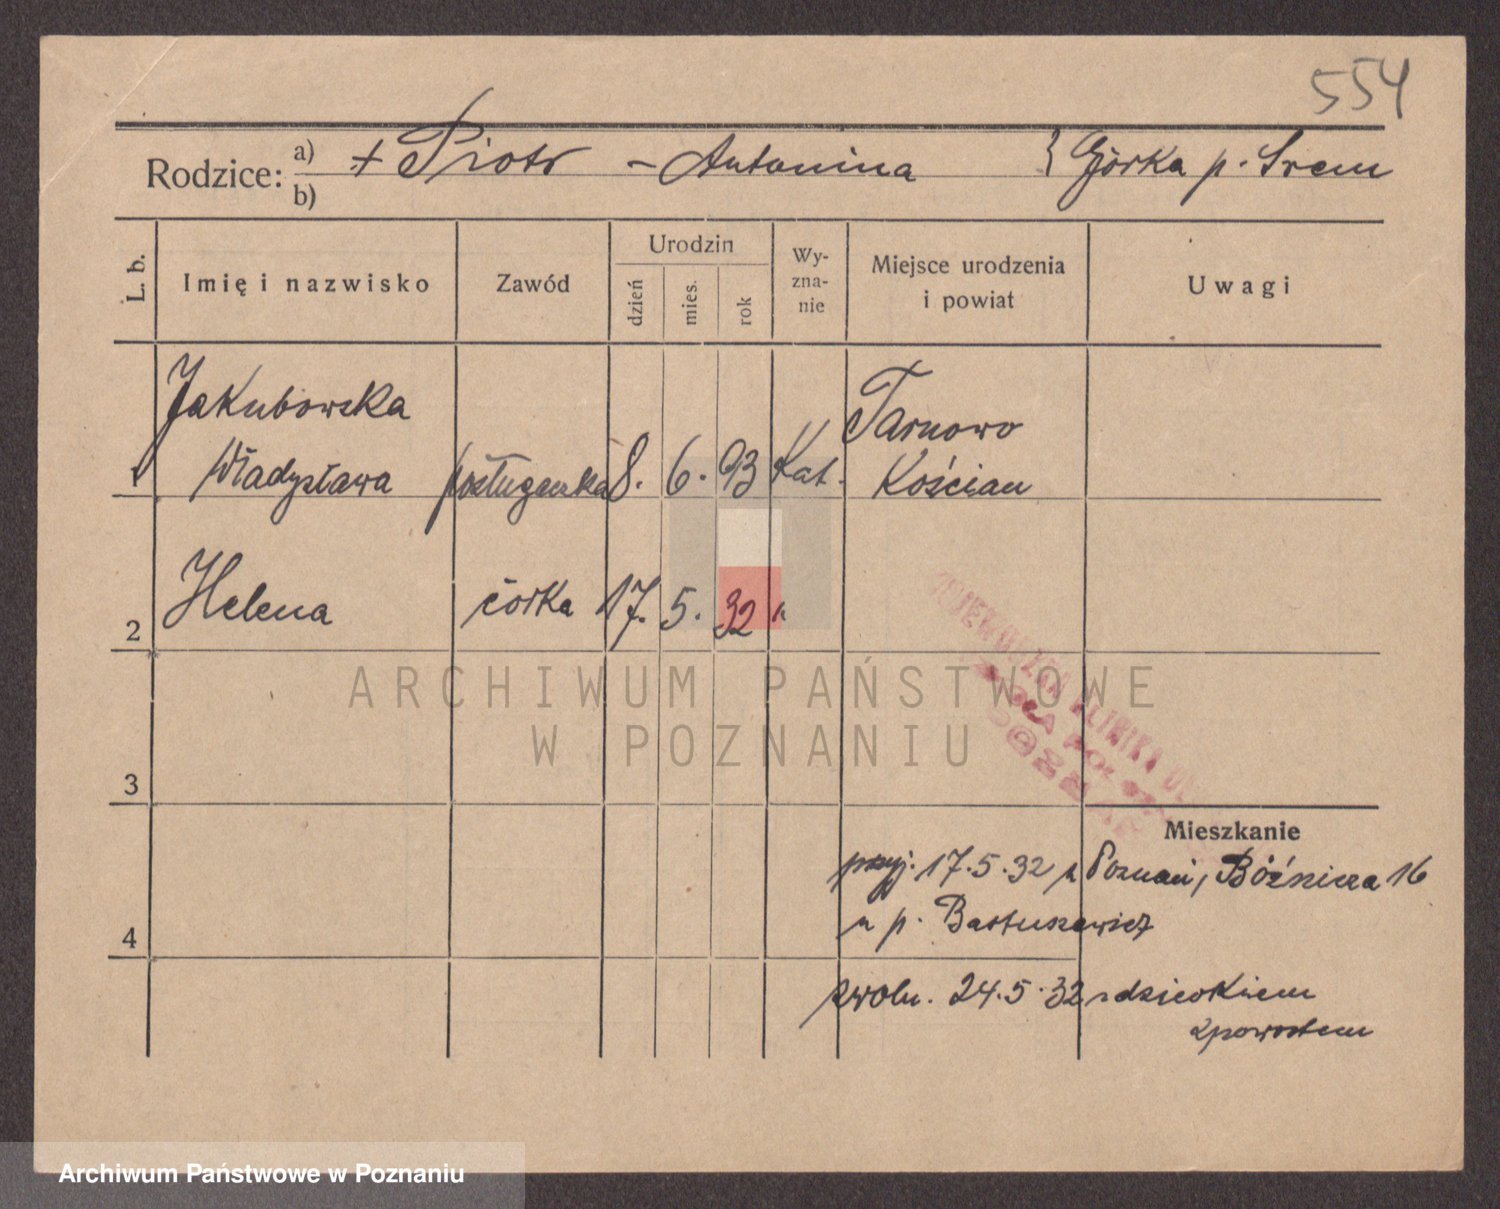 554
Rodzice: a) + Piotr – Antonina } Górka p. Śrem
b)
L. b.
Imię i nazwisko
Zawód
Urodzin
dzień
mies.
rok
Wy-
zna-
nie
Miejsce urodzenia
i powiat
Uwagi
1 Jakubowska
Władysława posługaczka 8. 6. 93 Kat. Tarnowo
Kościan
2 Helena córka 17. 5. 32 "
3
4
ARCHIWUM PAŃSTWOWE
W POZNANIU
Mieszkanie
przyj. 17.5.32 z Poznań, Bóźnicza 16
u p. Bartuszewicz
zwoln. 24.5.32 z dzieckiem
z powrotem
Archiwum Państwowe w Poznaniu